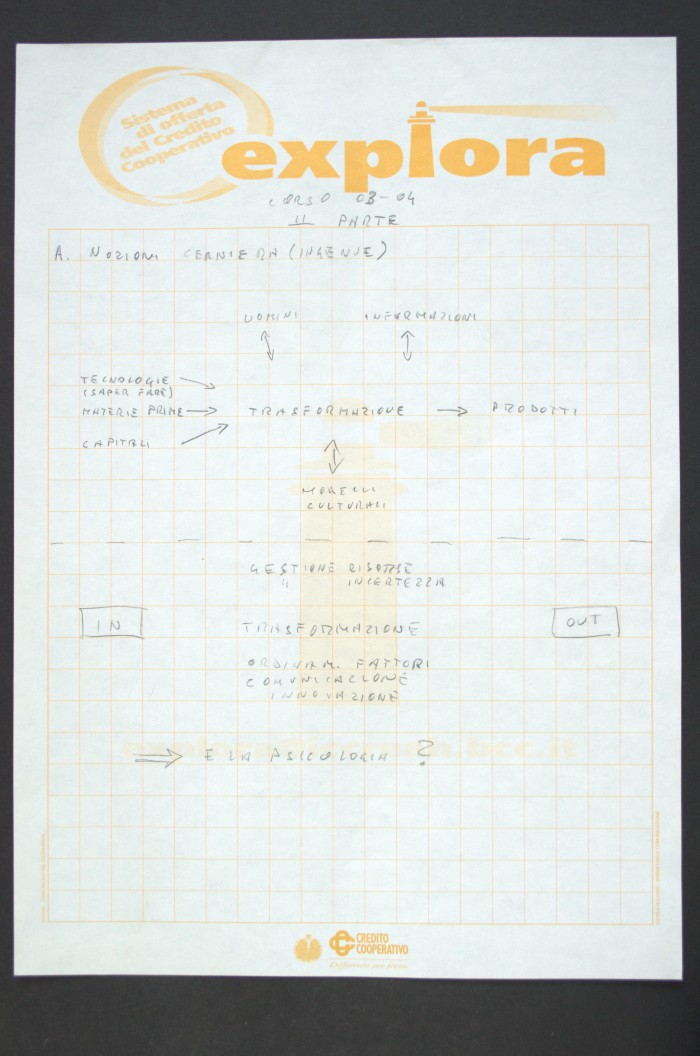 Sistema
di offerta
del Credito
Cooperativo
explora
CORSO 03-04
II PARTE
A. NOZIONI CERNIERA (INGENUE)
UOMINI INFORMAZIONI
TECNOLOGIE
(SAPER FARE)
MATERIE PRIME TRASFORMAZIONE PRODOTTI
CAPITALI
MODELLI
CULTURALI
GESTIONE RISORSE
" INCERTEZZA
IN TRASFORMAZIONE OUT
ORDINAM. FATTORI
COMUNICAZIONE
INNOVAZIONE
E LA PSICOLOGIA ?
CREDITO
COOPERATIVO